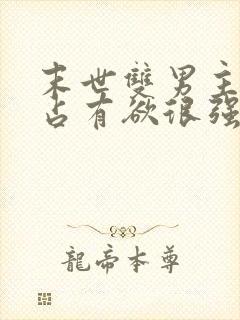 末世雙男主
占有欲很強
龍帝本尊